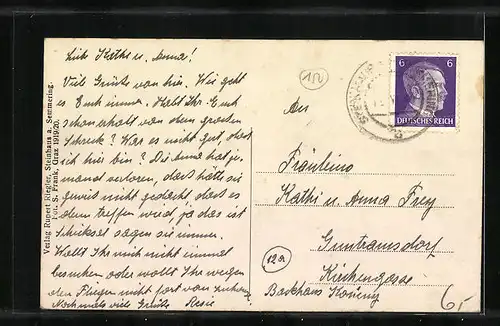 Lieb Kathi u. Anna!
Viel Grüße von hier. Wie geht
es Euch immer. Habt ihr Euch
schon erholt von dem großen
Schreck? War es nicht gut, daß
ich hier bin? Die Anna hat je-
mand verloren, daß hätte sie
gewiß nicht gedacht daß es
dem treffen wird ja das ist
Schicksal sagen sie immer.
Wollt Ihr mich nicht einmal
besuchen oder wollt Ihr wegen
den Flieger nicht fort von zuhause
Nochmals viele Grüße Resie
Verlag Rupert Riegler, Steinhaus a. Semmering.
Fot. S. Frank, Graz 1919/20.
150
6 6
DEUTSCHES REICH
An
Fräuleins
Kathi u. Anna Frey
Guntramsdorf
12a
Kirchengasse
Backhaus
6,-